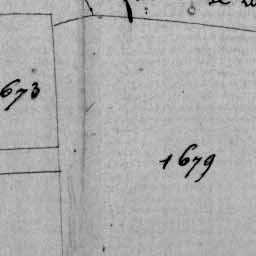 673
1679